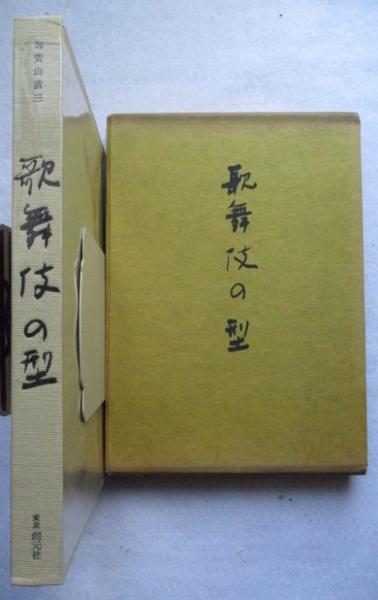 加賀山直三
歌舞伎の型
東京 創元社
歌舞伎の型